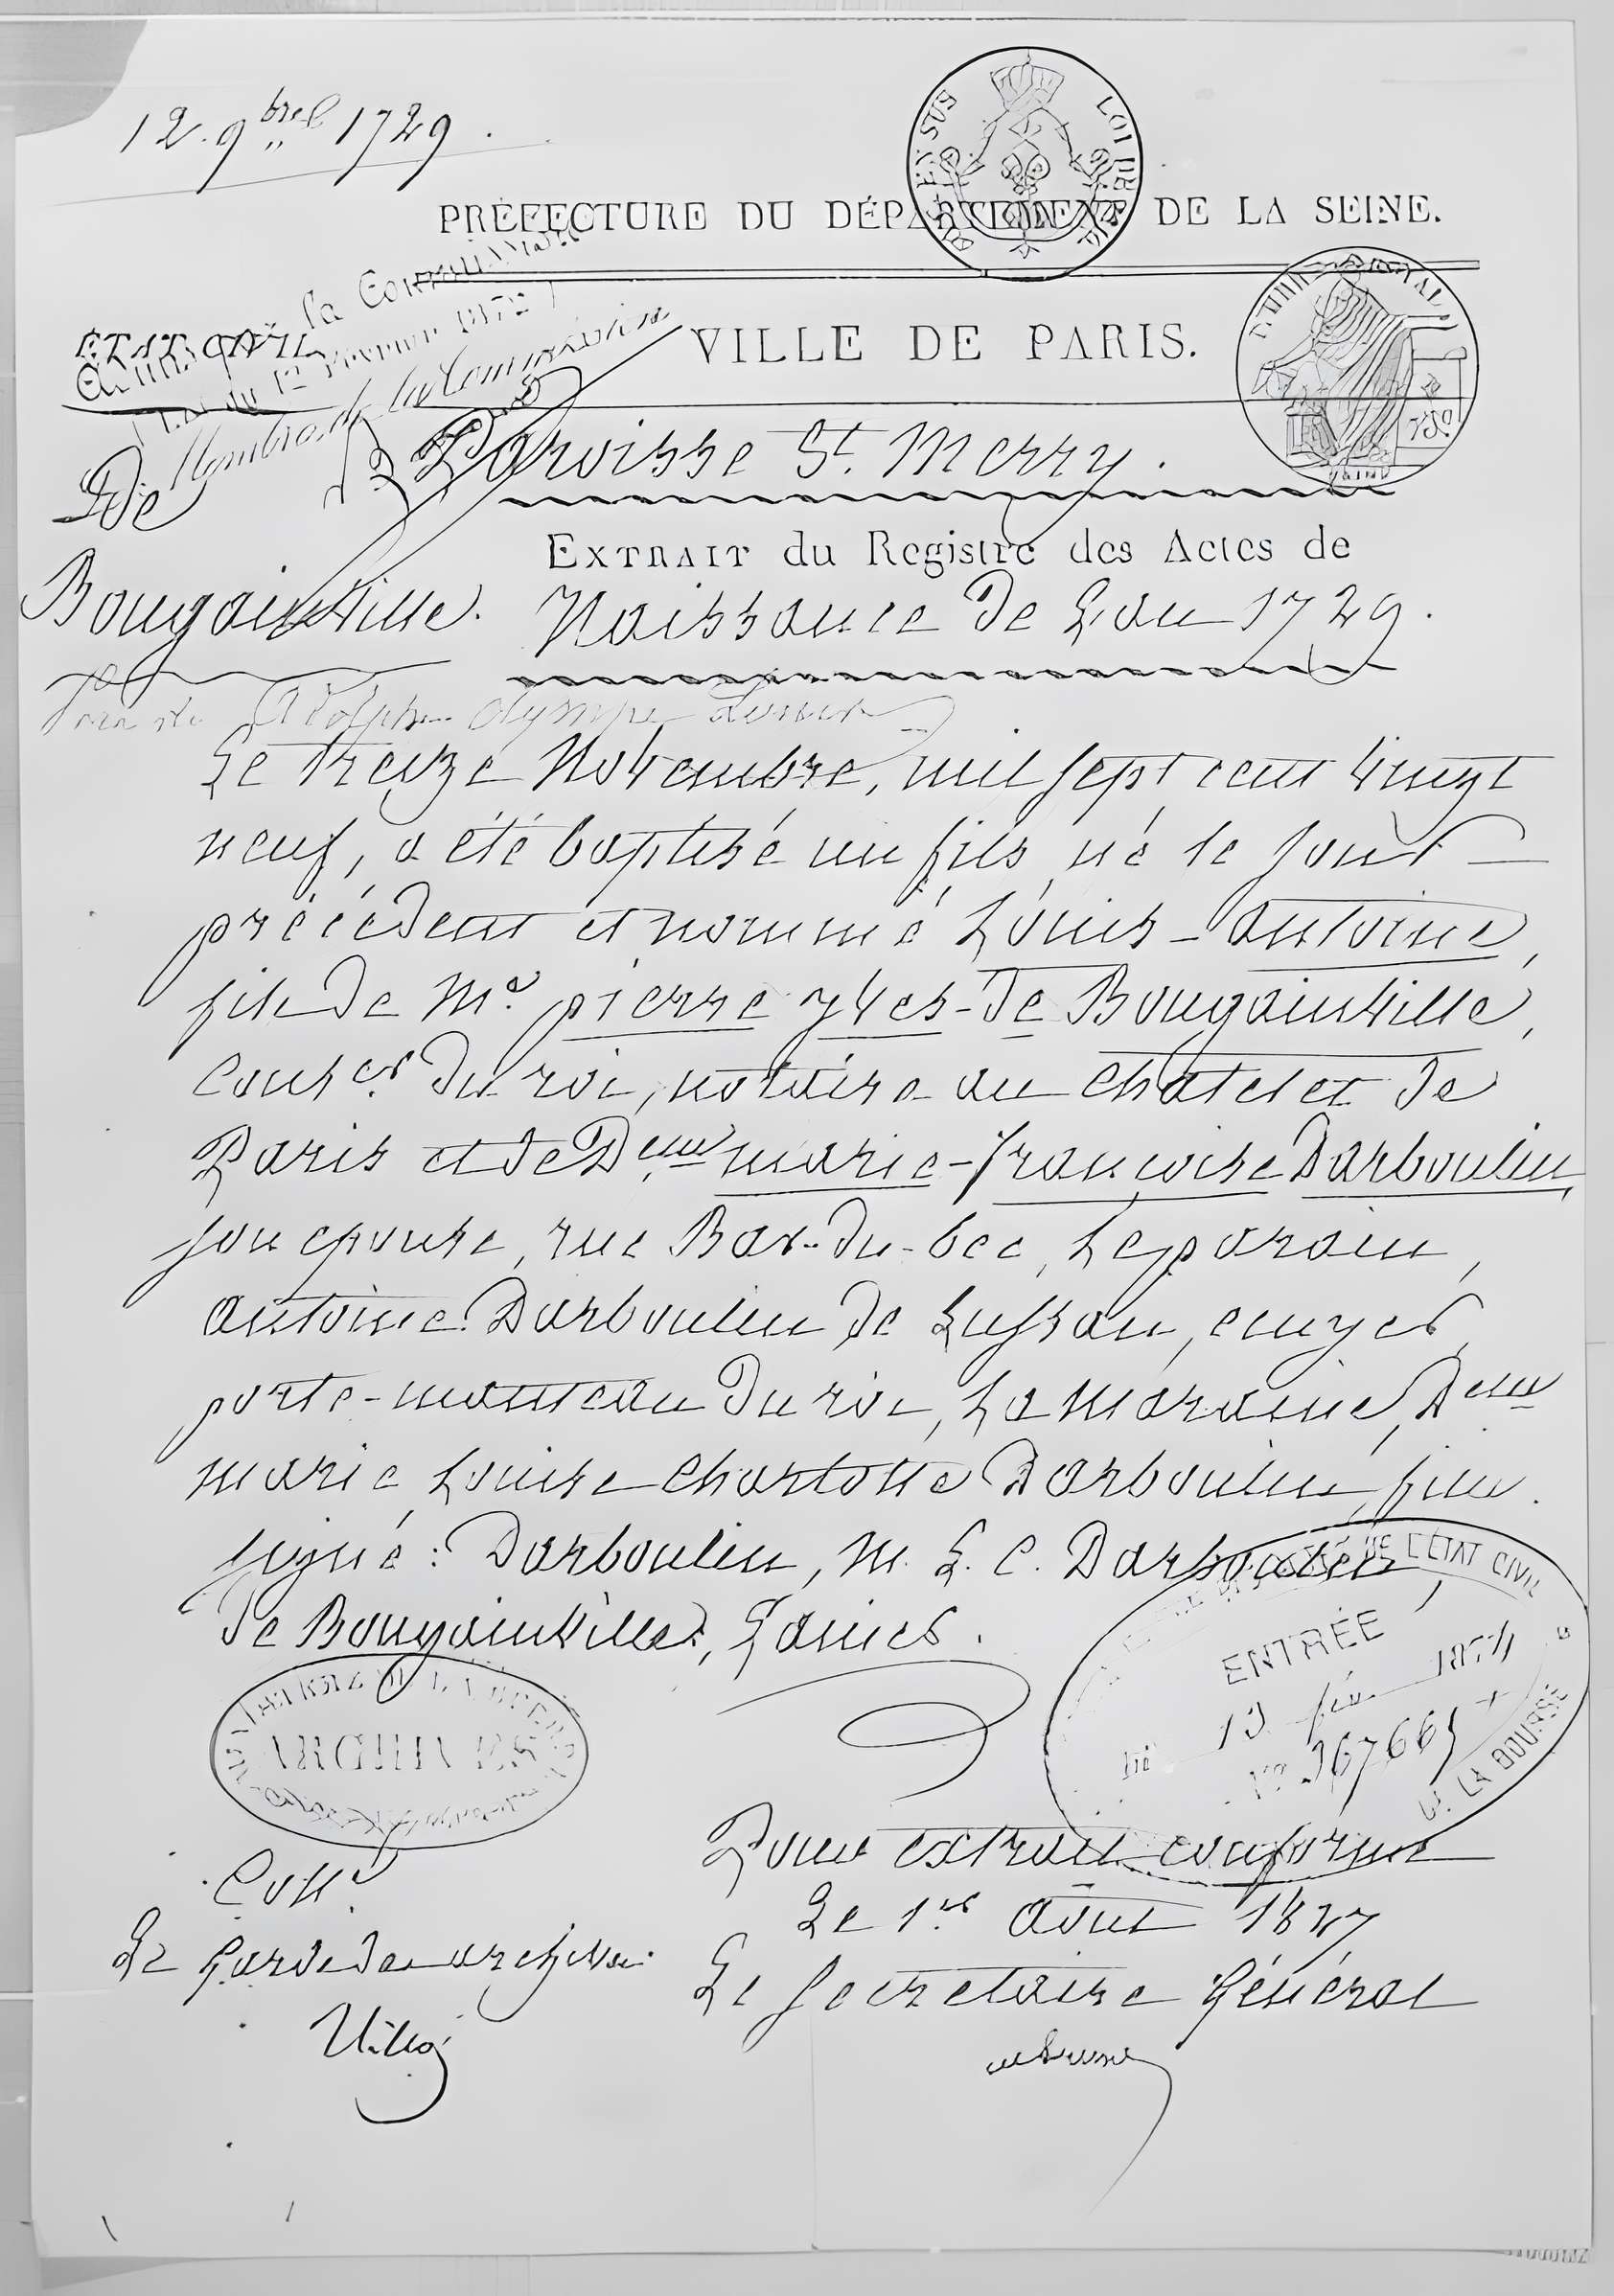 12. 9bre 1729.
PRÉFECTURE DU DÉPARTEMENT DE LA SEINE.
la Commission
ÉTAT CIVIL
VILLE DE PARIS.
Loi du 12 Février 1872
Membre de la Commission
Paroisse St. Merry.
De
Bougainville.
EXTRAIT du Registre des Actes de
Naissance de L'an 1729.
Adolphe Olympe
Le treize Novembre, mil sept cent vingt
neuf, a été baptisé un fils né le jour
précédent et nommé Louis-Antoine,
fils de Me. pierre yves-de Bougainville,
Conser. du roi, notaire au chatelet de
Paris et de Delle marie-françoise Darboulin,
son epouse, rue Bar-du-bec, Le parain,
antoine Darboulin de Lussan, ecuyer,
porte-manteau du roi, La Maraine, Delle
marie Louise Charlotte Darboulin, fille.
signé: Darboulin, M. L. C. Darboulin,
De Bougainville,
DE L'ÉTAT CIVIL
ENTRÉE
1874
No 367665
LA BOURSE
ARCHIVES
Pour extrait conforme
Colle
Le 1er. Août 1827
Le Garde des archives.
Le Secretaire Général
Villot